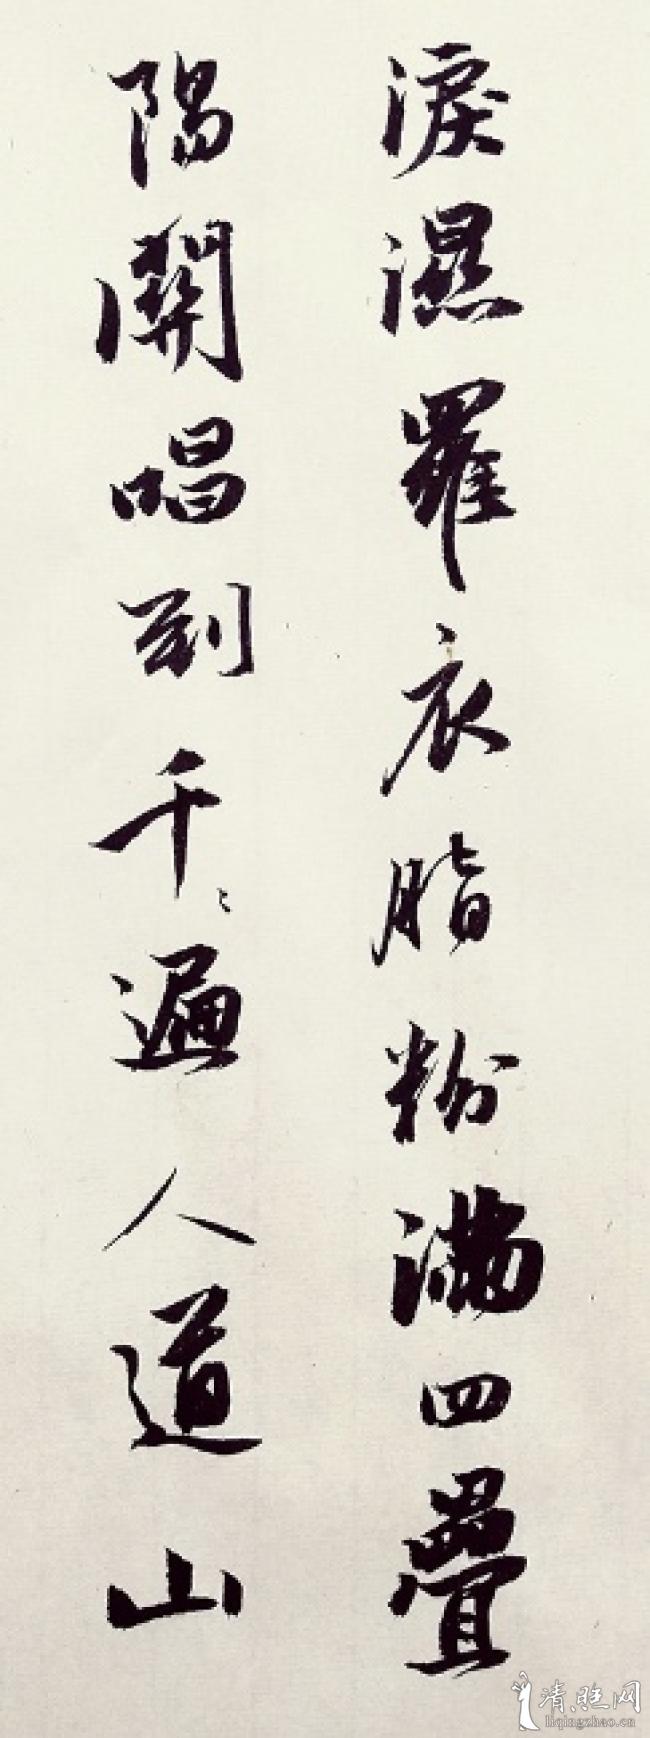 淚濕羅衣脂粉滿四疊
陽關唱到千〻遍人道山
清照网
liqingzhao.cn